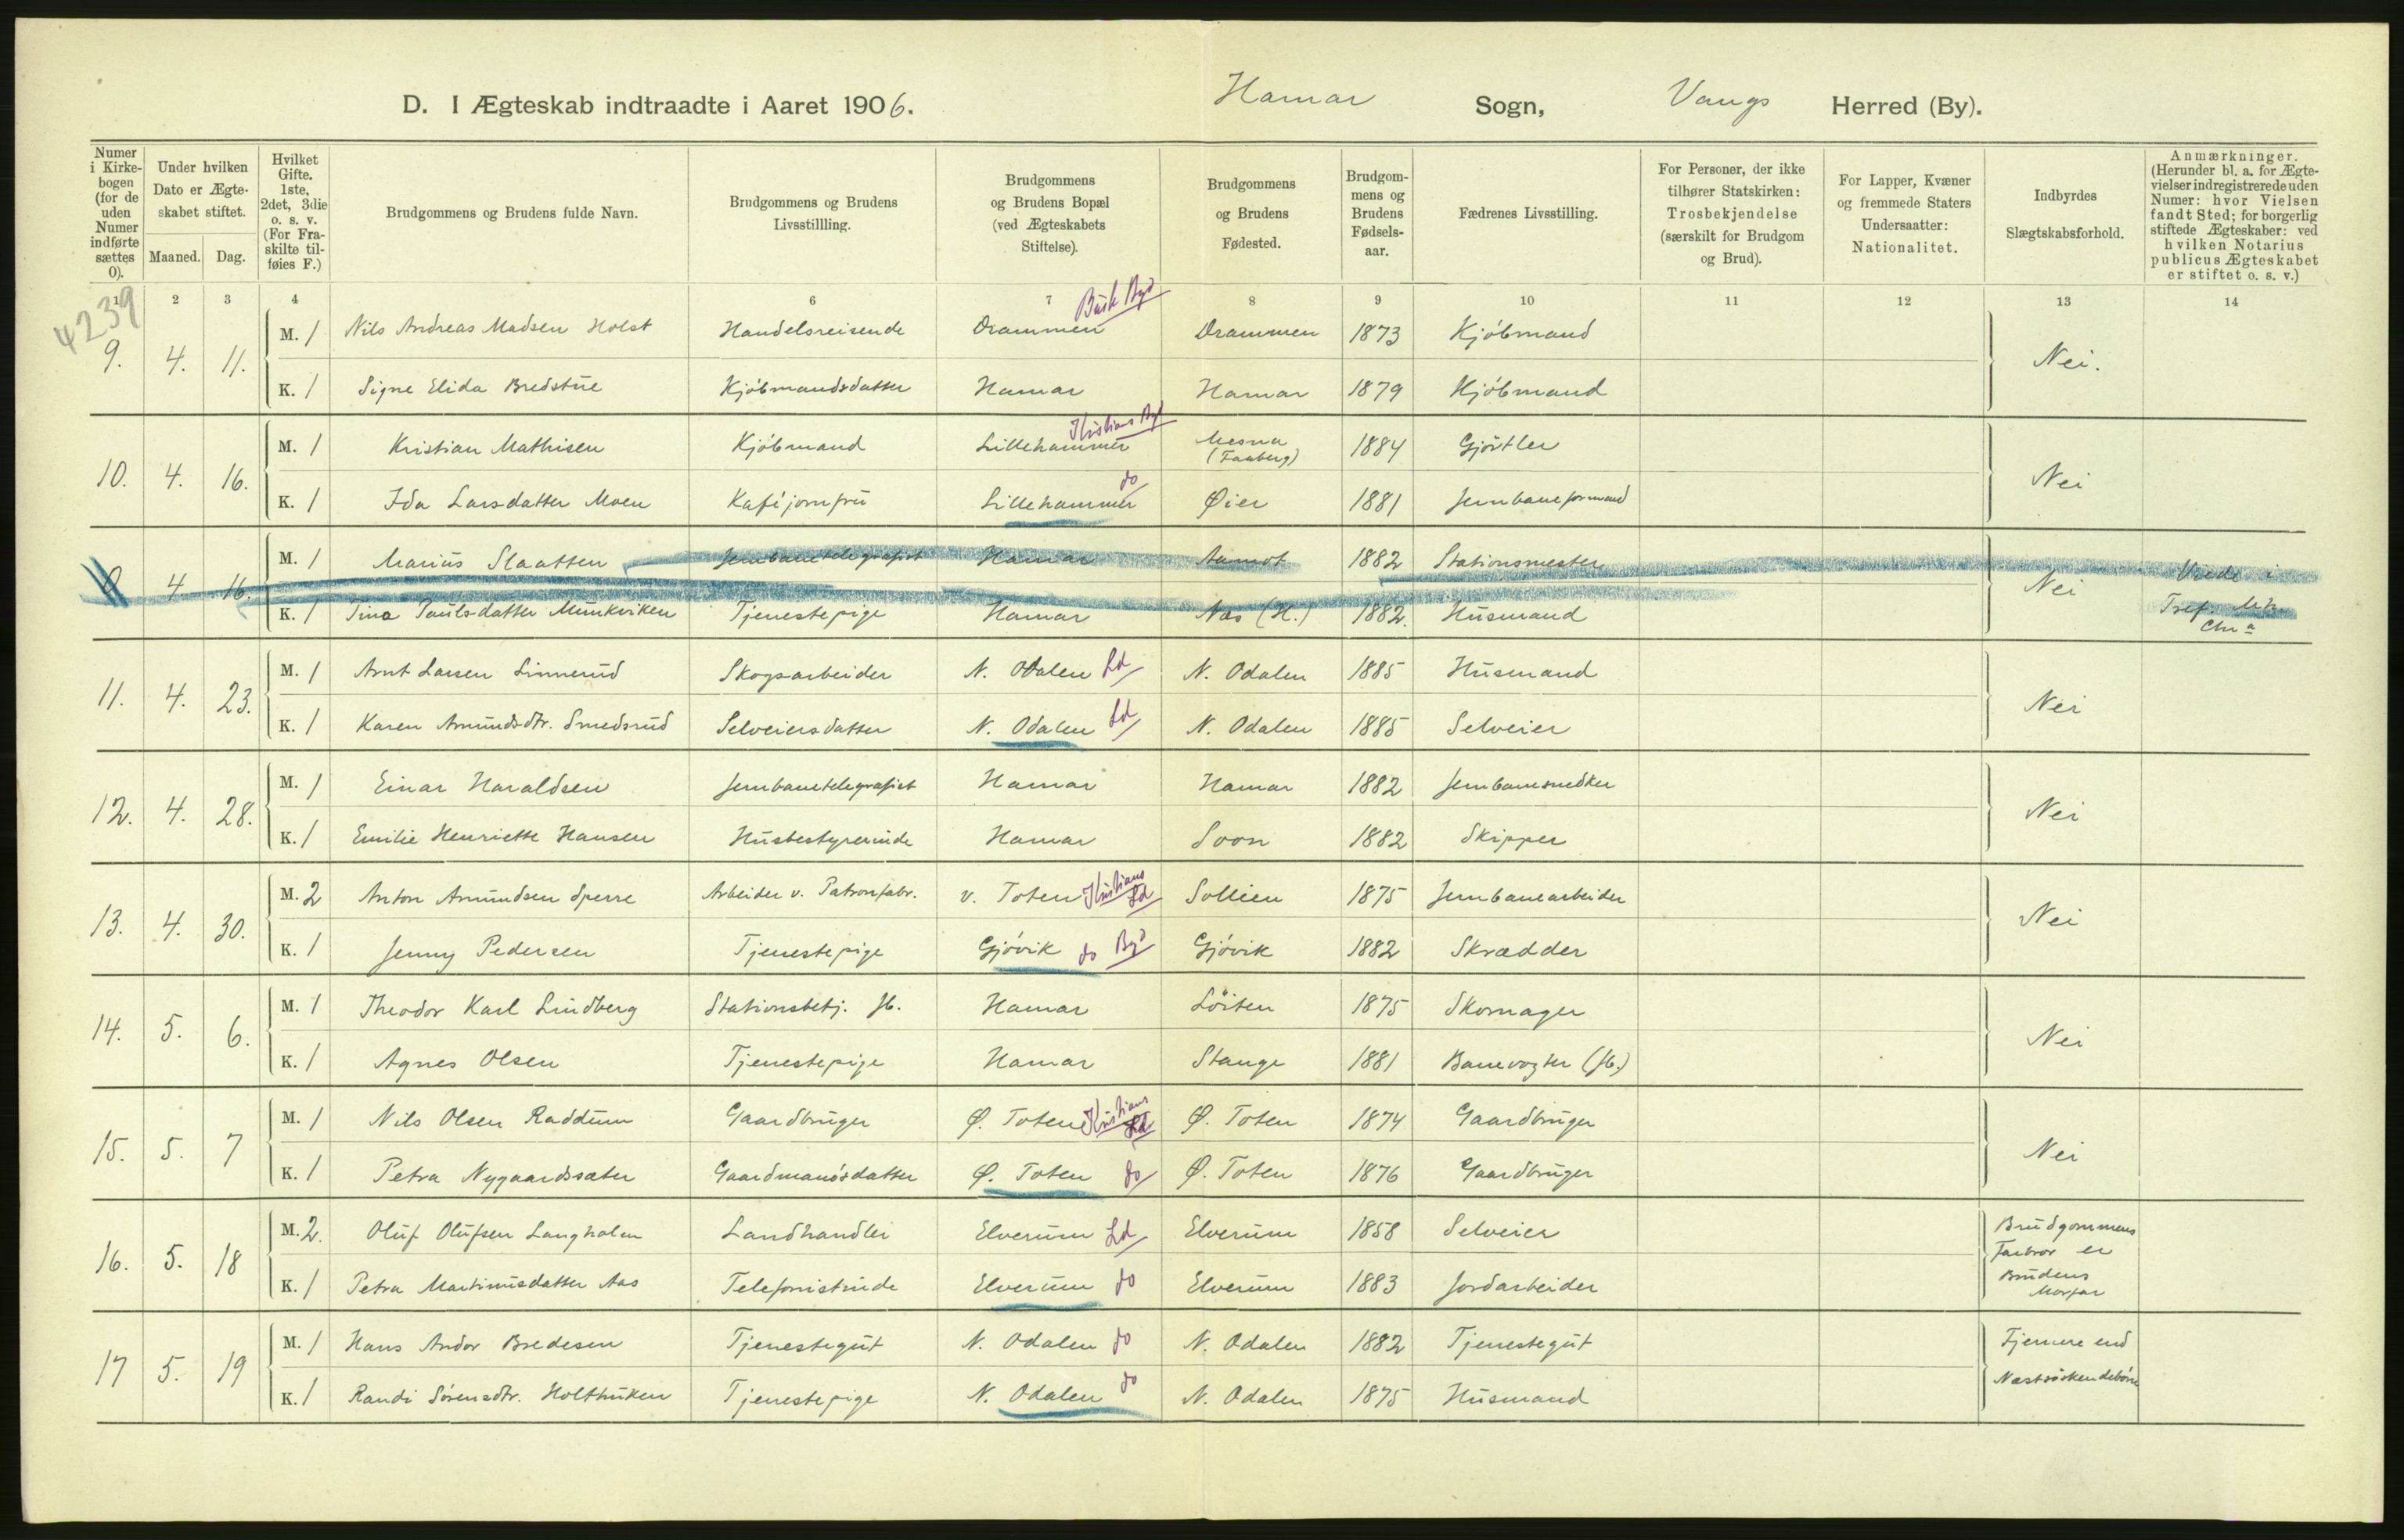 D. I Ægteskab indtraadte i Aaret 1906. Hamar Sogn, Vangs Herred (By).
Numer i Kirkebogen (for de uden Numer indførte sættes 0).
Under hvilken Dato er Ægteskabet stiftet.
Maaned. Dag.
Hvilket Gifte. 1ste, 2det, 3die o. s. v. (For Fraskilte tilføies F.)
Brudgommens og Brudens fulde Navn.
Brudgommens og Brudens Livsstillling.
Brudgommens og Brudens Bopæl (ved Ægteskabets Stiftelse).
Brudgommens og Brudens Fødested.
Brudgommens og Brudens Fødselsaar.
Fædrenes Livsstilling.
For Personer, der ikke tilhører Statskirken: Trosbekjendelse (særskilt for Brudgom og Brud).
For Lapper, Kvæner og fremmede Staters Undersaatter: Nationalitet.
Indbyrdes Slægtskabsforhold.
Anmærkninger. (Herunder bl. a. for Ægtevielser indregistrerede uden Numer: hvor Vielsen fandt Sted; for borgerlig stiftede Ægteskaber: ved hvilken Notarius publicus Ægteskabet er stiftet o. s. v.)
1 2 3 4 6 7 8 9 10 11 12 13 14
4239
9. 4. 11. M. 1 Nils Andreas Madsen Holst Handelsreisende Drammen Busk Byd Drammen 1873 Kjöbmand Nei.
K. 1 Signe Elida Bredstue Kjöbmandsdatter Hamar Hamar 1879 Kjöbmand
10. 4. 16. M. 1 Kristian Mathisen Kjöbmand Lillehammer Kristians Byd Mesna (Faaberg) 1884 Gjörtler Nei
K. 1 Ida Larsdatter Moen Kaféjomfru Lillehammer do Øier 1881 Jernbaneformand
4 16. M. 1 Marius Slaatten Jernbanetelegrafist Hamar Aamot 1882 Stationsmester Nei Viede i
K. 1 Tina Paulsdatter Munkviken Tjenestepige Hamar Næs (H.) 1882. Husmand Tref. Mk. Chr a
11. 4. 23. M. 1 Arnt Larsen Linnerud Skogsarbeider N. Odalen Ld N. Odalen 1885 Husmand Nei
K. 1 Karen Amundsdtr. Smedsrud Selveiersdatter N. Odalen Ld N. Odalen 1885 Selveier
12. 4. 28. M. 1 Einar Haraldsen Jernbanetelegrafist Hamar Hamar 1882 Jernbanesnedker Nei
K. 1 Emilie Henriette Hansen Husbestyrerinde Hamar Soon 1882 Skipper
13. 4. 30. M. 2 Anton Amundsen Sperre Arbeider v. Patronfabr. V. Toten Kristians Ld Sollien 1875 Jernbanearbeider Nei
K. 1 Jenny Pedersen Tjenestepige Gjövik do Byd Gjövik 1882 Skrædder
14. 5. 6. M. 1 Theodor Karl Lindberg Stationsbetj. Jb. Hamar Löiten 1875 Skomager Nei
K. 1 Agnes Olsen Tjenestepige Hamar Stange 1881 Banevogter (Jb.)
15. 5. 7 M. 1 Nils Olsen Raddum Gaardbruger Ø. Toten Kristians Ld Ø. Toten 1874 Gaardbruger Nei
K. 1 Petra Nygaardssæter Gaardmandsdatter Ø. Toten do Ø. Toten 1876 Gaardbruger
16. 5. 18 M. 2. Oluf Olufsen Langholm Landhandler Elverum Ld Elverum 1858 Selveier Brudgommens Farbror er
K. 1 Petra Martinusdatter Aas Telefonistinde Elverum do Elverum 1883 Jordarbeider Brudens Morfar
17 5. 19 M. 1 Hans Andor Bredesen Tjenestegut N. Odalen do N. Odalen 1882 Tjenestegut Fjernere end
K. 1 Randi Sörensdtr. Holthuken Tjenestepige N. Odalen do N. Odalen 1875 Husmand Næstsöskendebörn